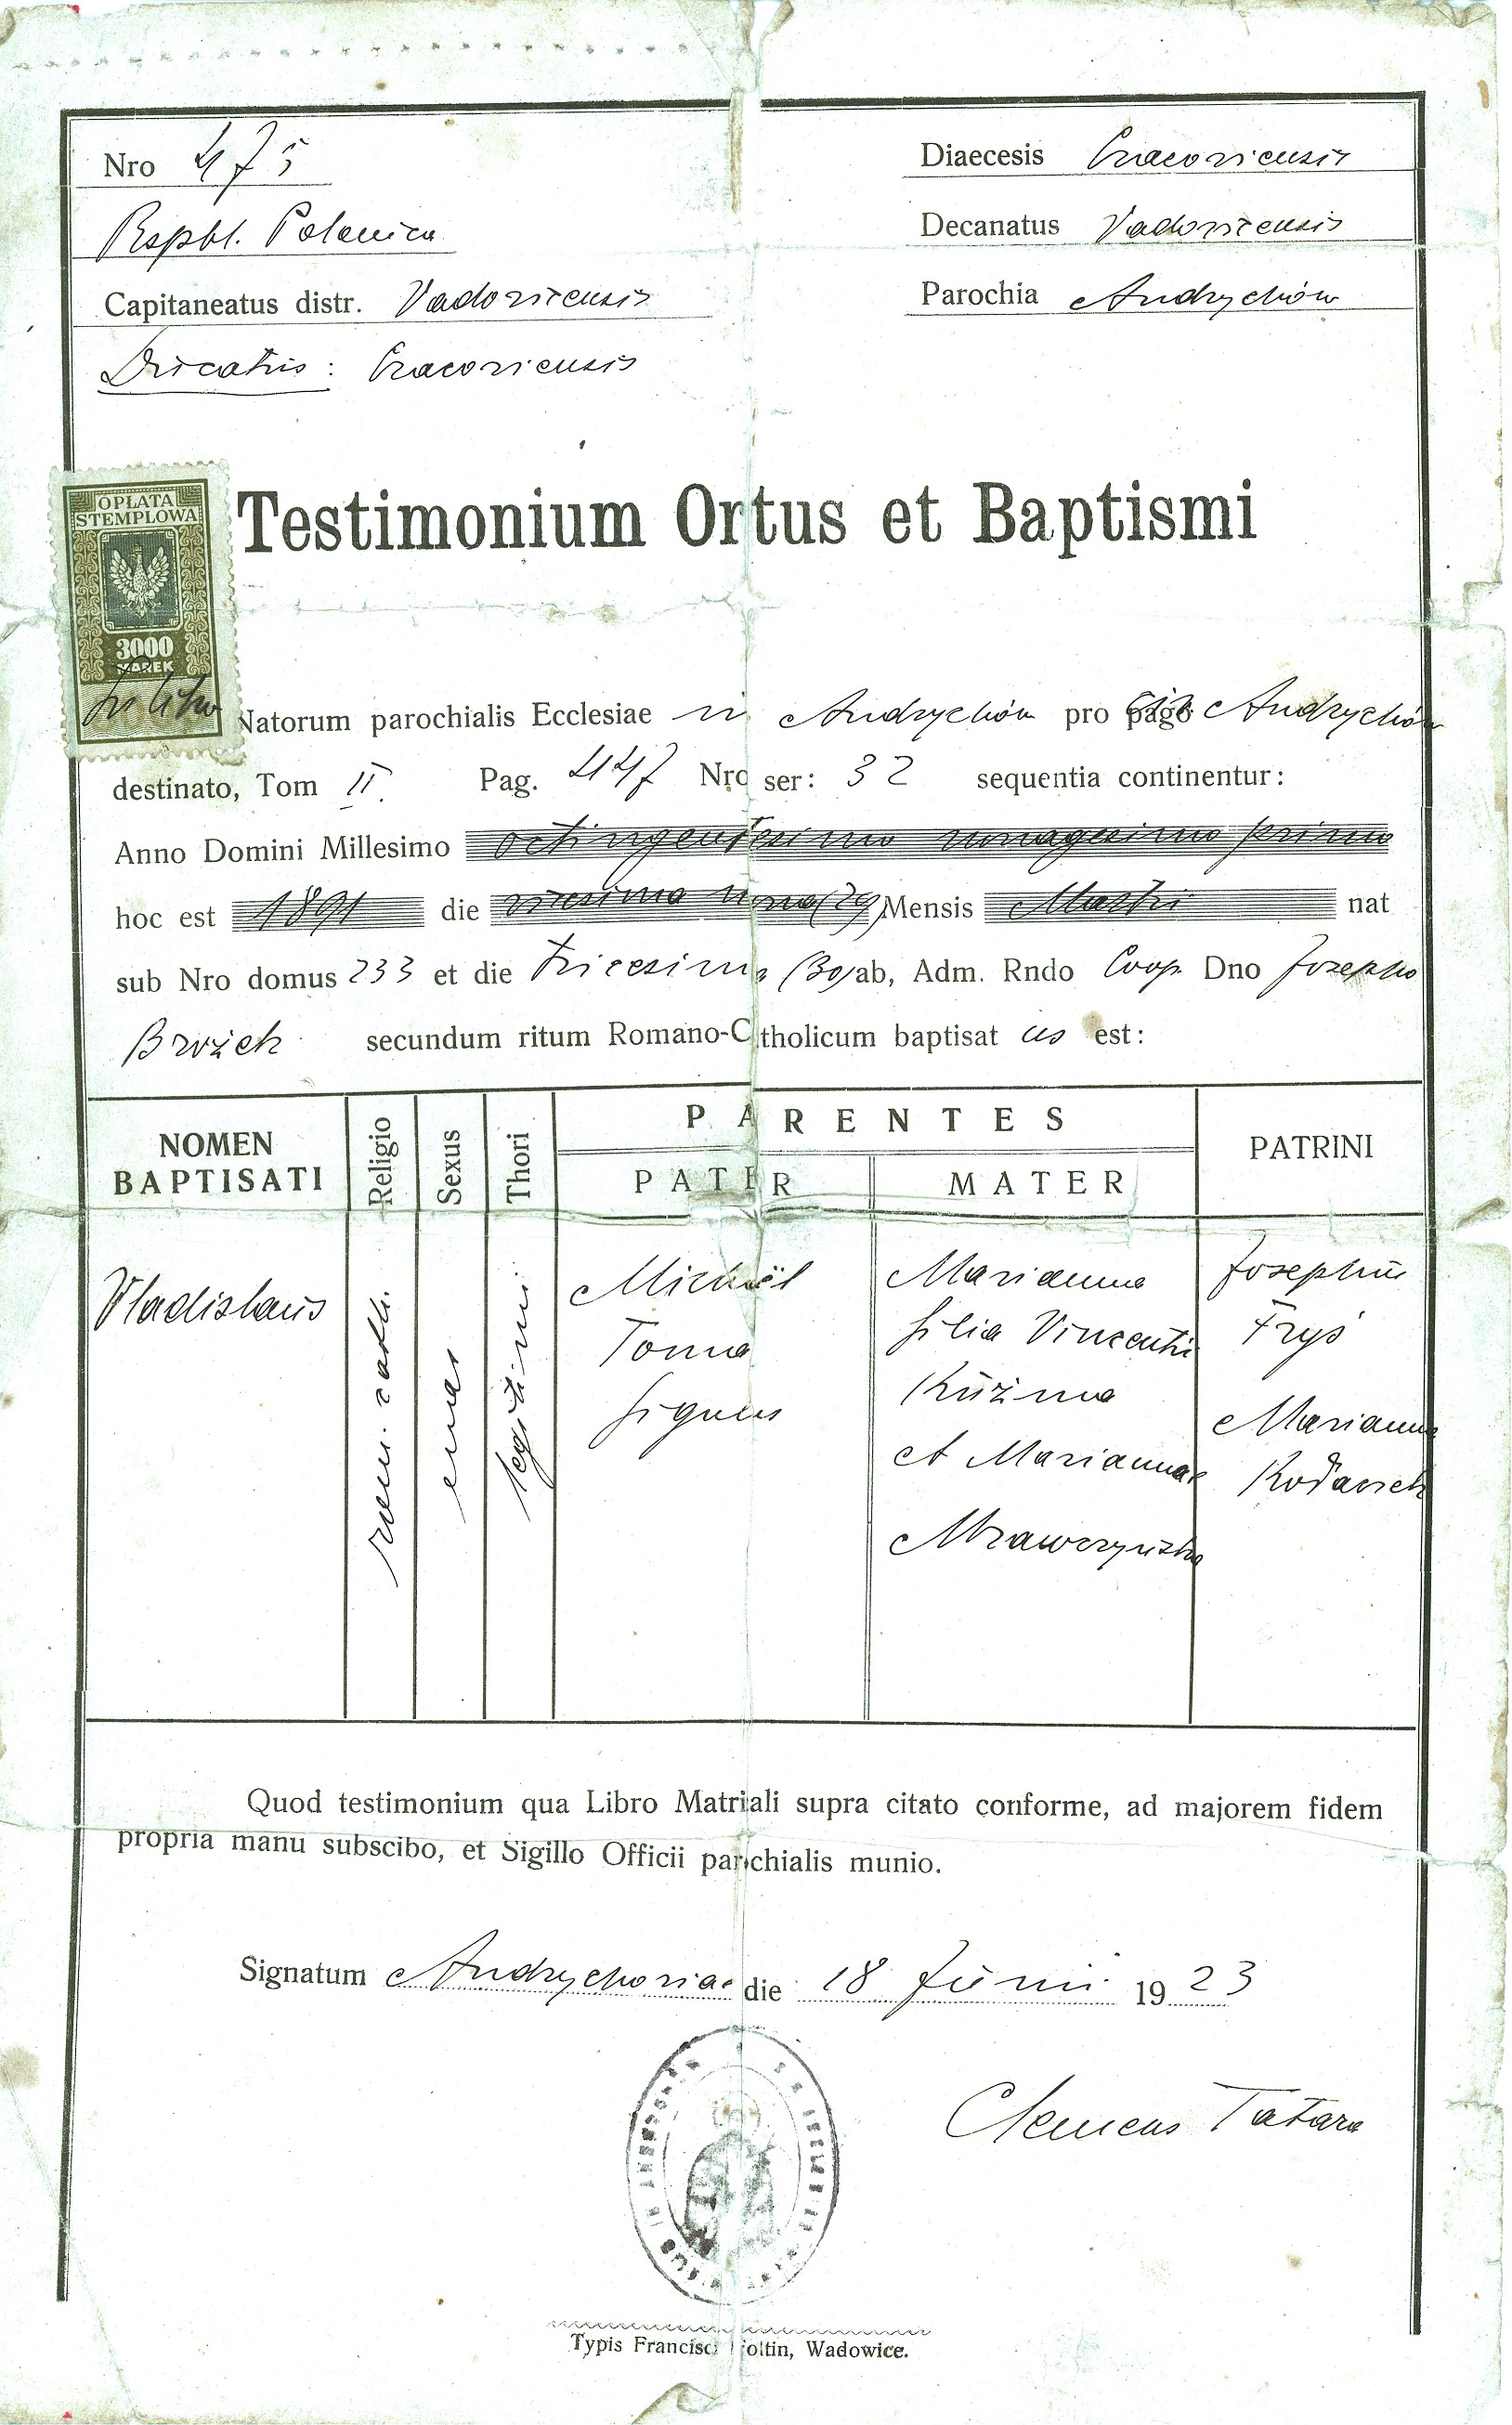 Nro 475
Diaecesis Cracoviensis
Rspbl. Polonica
Decanatus Vadovicensis
Capitaneatus distr. Vadovicensis
Parochia Andrychów
Ducatus: Cracoviensis
OPŁATA
STEMPLOWA
Testimonium Ortus et Baptismi
3000
MAREK
Natorum parochialis Ecclesiae in Andrychów pro pago Andrychów
destinato, Tom II. Pag. 447 Nro ser: 32 sequentia continentur:
Anno Domini Millesimo octingentesimo nonagesimo primo
hoc est 1891 die vicesima nona (29) Mensis Martii nat
sub Nro domus 233 et die tricesima (30) ab, Adm. Rndo Coop. Dno Josepho
Brożek secundum ritum Romano-Catholicum baptisat us est:
NOMEN BAPTISATI Religio Sexus Thori PARENTES PATRINI
PATER MATER
Vladislaus rom. cath. mas legitimi
Michaël Marianna Josephus
Toma filia Vincentii Fryś
figulus Kuźma Marianna
et Mariannae
Mrawczyńska
Quod testimonium qua Libro Matriali supra citato conforme, ad majorem fidem
propria manu subscibo, et Sigillo Officii parochialis munio.
Signatum Andrychoviae die 18 Junii 1923
Clemens Tatara
Typis Francisci Foltin, Wadowice.